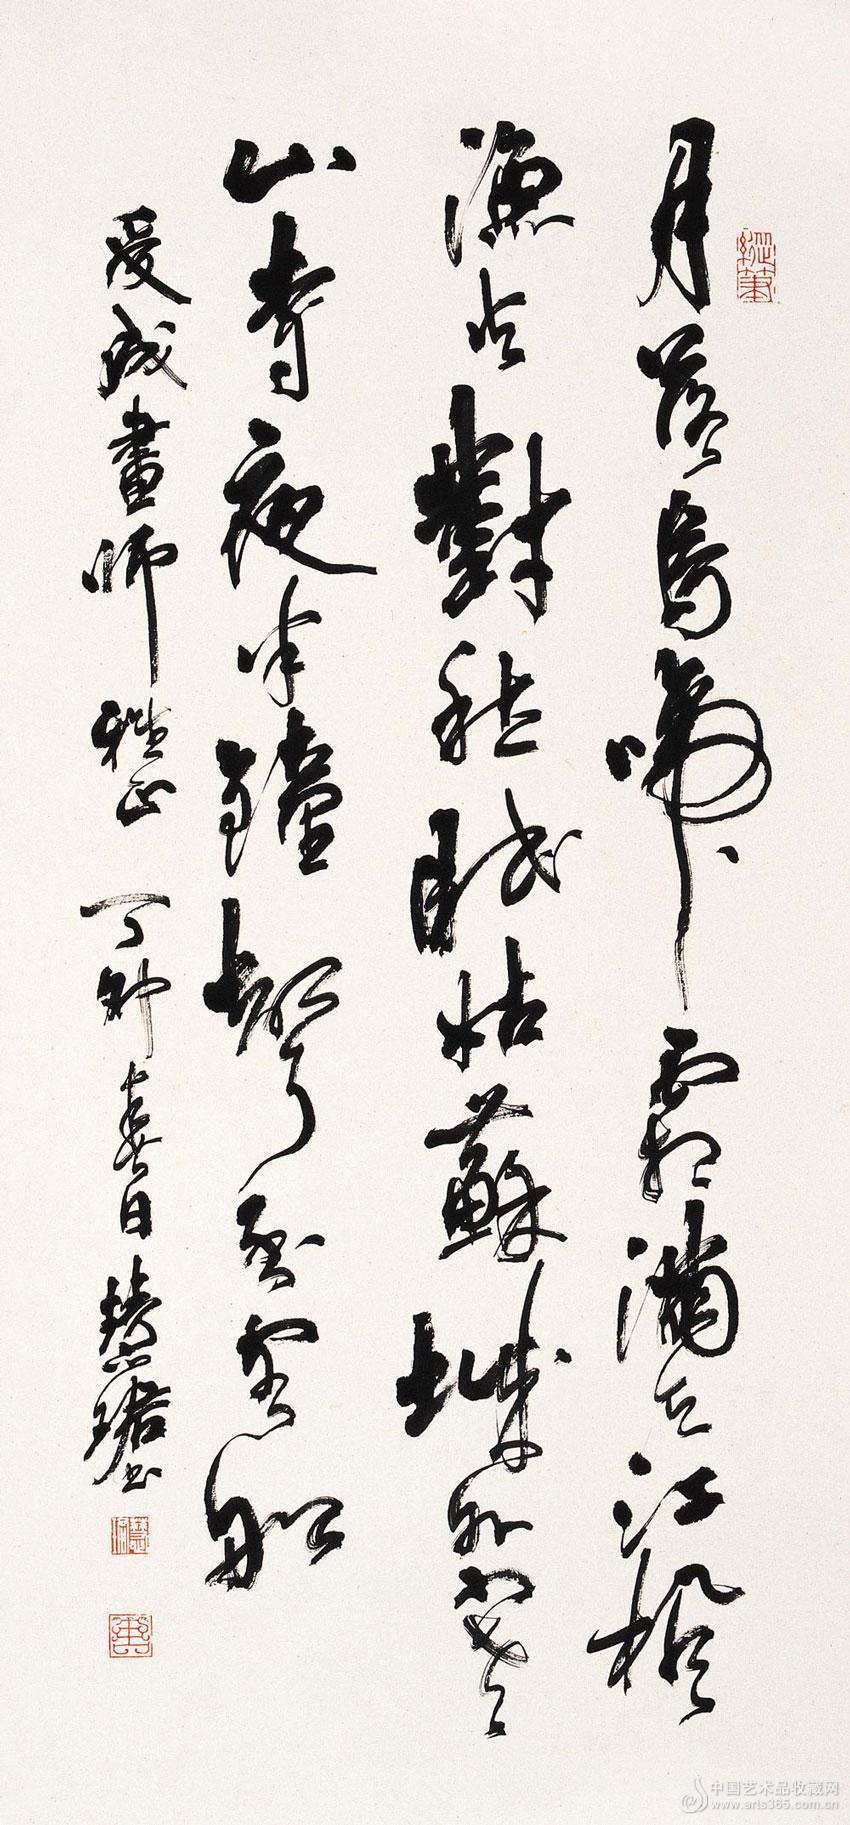 月落烏啼霜滿天江楓
漁火對愁眠姑蘇城外寒
山寺夜半鐘聲到客船
成畫師雅正 丁卯春日 慧珺書
中国艺术品收藏网
www.arts365.com.cn